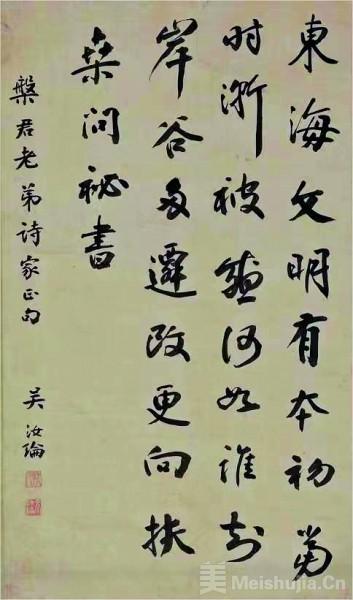 東海文明有本初當
時漸被盛何如誰知
岸谷多遷改更向扶
桑問祕書
槃君老弟詩家正句
吴汝綸
美 Meishujia.Cn